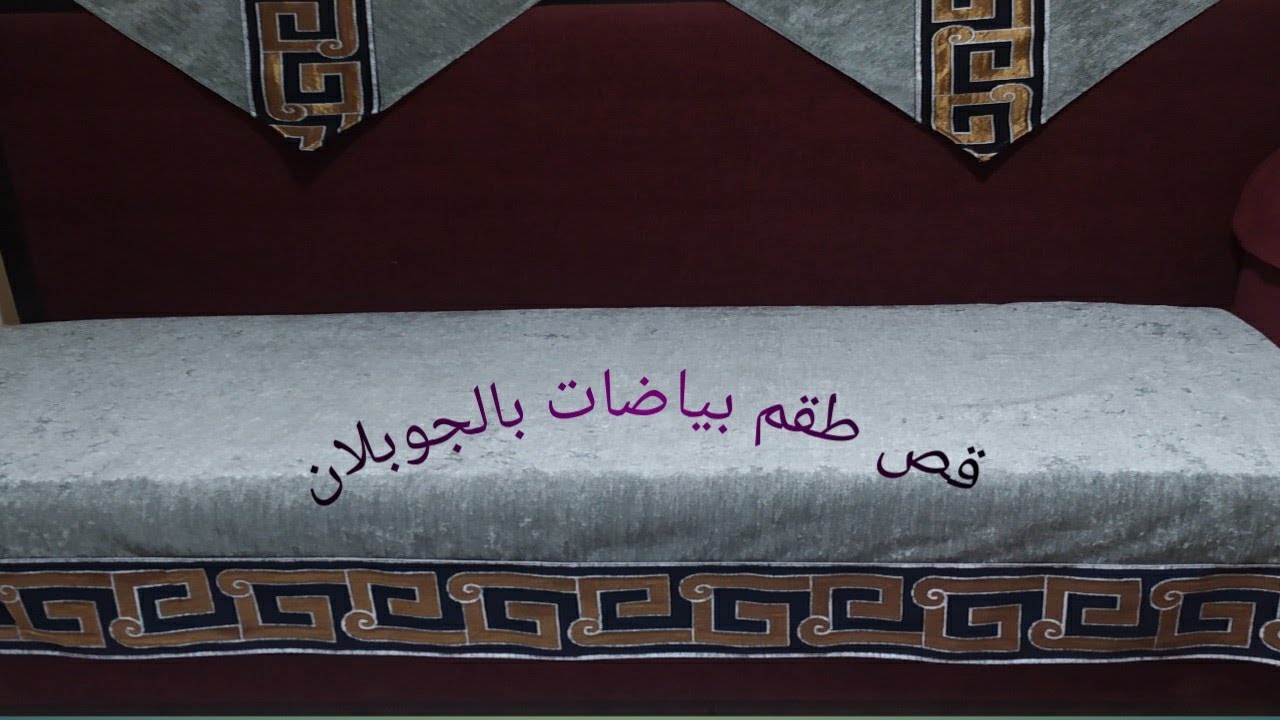 قص طقم بياضات بالجوبلان